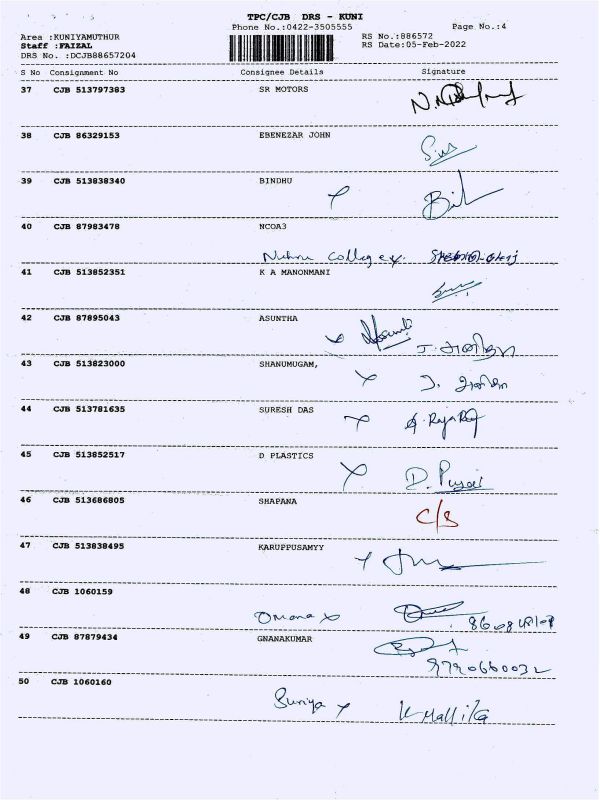 TPC/CJB DRS - KUNI
Phone No.:0422-3505555 Page No.:4
Area :KUNIYAMUTHUR RS No.:886572
Staff :FAIZAL RS Date:05-Feb-2022
DRS No. :DCJB88657204
S No Consignment No Consignee Details Signature
37 CJB 513797383 SR MOTORS
38 CJB 86329153 EBENEZAR JOHN
39 CJB 513838340 BINDHU
40 CJB 87983478 NCOA3
Nehru College
41 CJB 513852351 K A MANONMANI
42 CJB 87895043 ASUNTHA
43 CJB 513823000 SHANUMUGAM,
44 CJB 513781635 SURESH DAS
45 CJB 513852517 D PLASTICS
46 CJB 513686805 SHAPANA
C/S
47 CJB 513838495 KARUPPUSAMYY
48 CJB 1060159
Omana
49 CJB 87879434 GNANAKUMAR
9790660032
50 CJB 1060160
Suriya K Mallika